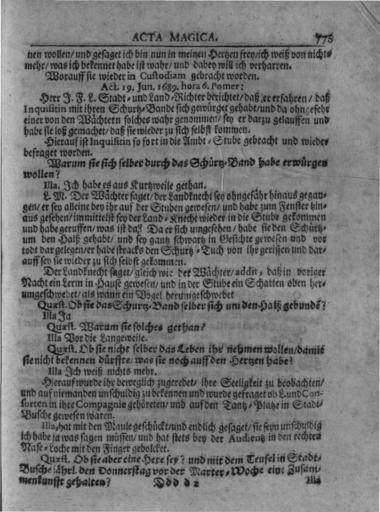 ACTA MAGICA. 775
nen wollen/ und gesaget ich bin nun in meinen Hertzen frey/ ich weiß von nichts
mehr/ was ich bekennet habe ist wahr/ und dabey will ich verharren.
Worauff sie wieder in Custodiam gebracht worden.
Act. 19. Jun. 1689. hora 6. Pomer:
Herr J. F. L. Stadt- und Land-Richter berichtet/ daß er erfahren/ daß
Inquisitin mit ihren Schurtz-Band sich gewürget gehabt/ und da ohngefehr
einer von den Wächtern solches wahr genommen/ sey er darzu gelauffen und
habe sie loß gemachet/ daß sie wieder zu sich selbst kommen.
Hierauf ist Inquisitin so fort in die Ambt-Stube gebracht und wieder
befraget worden.
Warum sie sich selber durch das Schürtz-Band habe erwürgen
wollen?
Illa. Ich habe es aus Kurtzweile gethan.
L. M. Der Wächter saget/ der Landknecht sey ohngefähr hinaus gegan-
gen/ er sey alleine bey ihr auf der Stuben gewesen/ und habe zum Fenster hin-
aus gesehen/ immittelst sey der Land-Knecht wieder in die Stube gekommen
und habe geruffen/ was ist das? Da er sich umgesehen/ habe sie den Schürtz-
um den Halß gehabt/ und sey gantz schwartz in Gesichte gewesen und vor
todt dar gelegen/ er habe stracks den Schurtz-Tuch von ihr gerissen und dar-
auff sey sie wieder zu sich selbst gekommen.
Der Landknecht saget/ gleich wie der Wächter/ addit, daß in voriger
Nacht ein Lerm in Hause gewesen/ und in der Stube ein Schatten oben her-
umgeschwebet/ als wann ein Vogel herumgeschwebet
Quæst. Ob sie das Schurtz-Band selber sich um den Halß gebunden?
Illa Ja
Quæst. Warum sie solches gethan?
Illa Vor die Langeweile.
Quæst. Ob sie nicht selber das Leben ihr nehmen wollen/ damit
sie nicht bekennen dürffte/ was sie noch auff den Hertzen habe?
Illa Ich weiß nichts mehr.
Hierauf wurde ihr beweglich zugeredet/ ihre Seeligkeit zu beobachten/
und auf niemanden unschuldig zu bekennen und wurde gefraget ob Lund Con-
sorten in ihre Compagnie gehöreten/ und auf den Tantz-Platze in Stadt-
Busche gewesen waren.
Illa, hat mit den Maule geschückt/ und endlich gesaget/ sie seyn unschuldig
ich habe ja was sagen müssen/ und hat stets bey der Audientz in den rechten
Nase-Loche mit den Finger gebolcket.
Quæst. Ob sie aber eine Hexe sey? und mit dem Teufel in Stadt-
Busche jährl. den Donnerstag vor der Marter-Woche eine Zusam-
menkunfft gehalten?
Ddd d 2 Illa